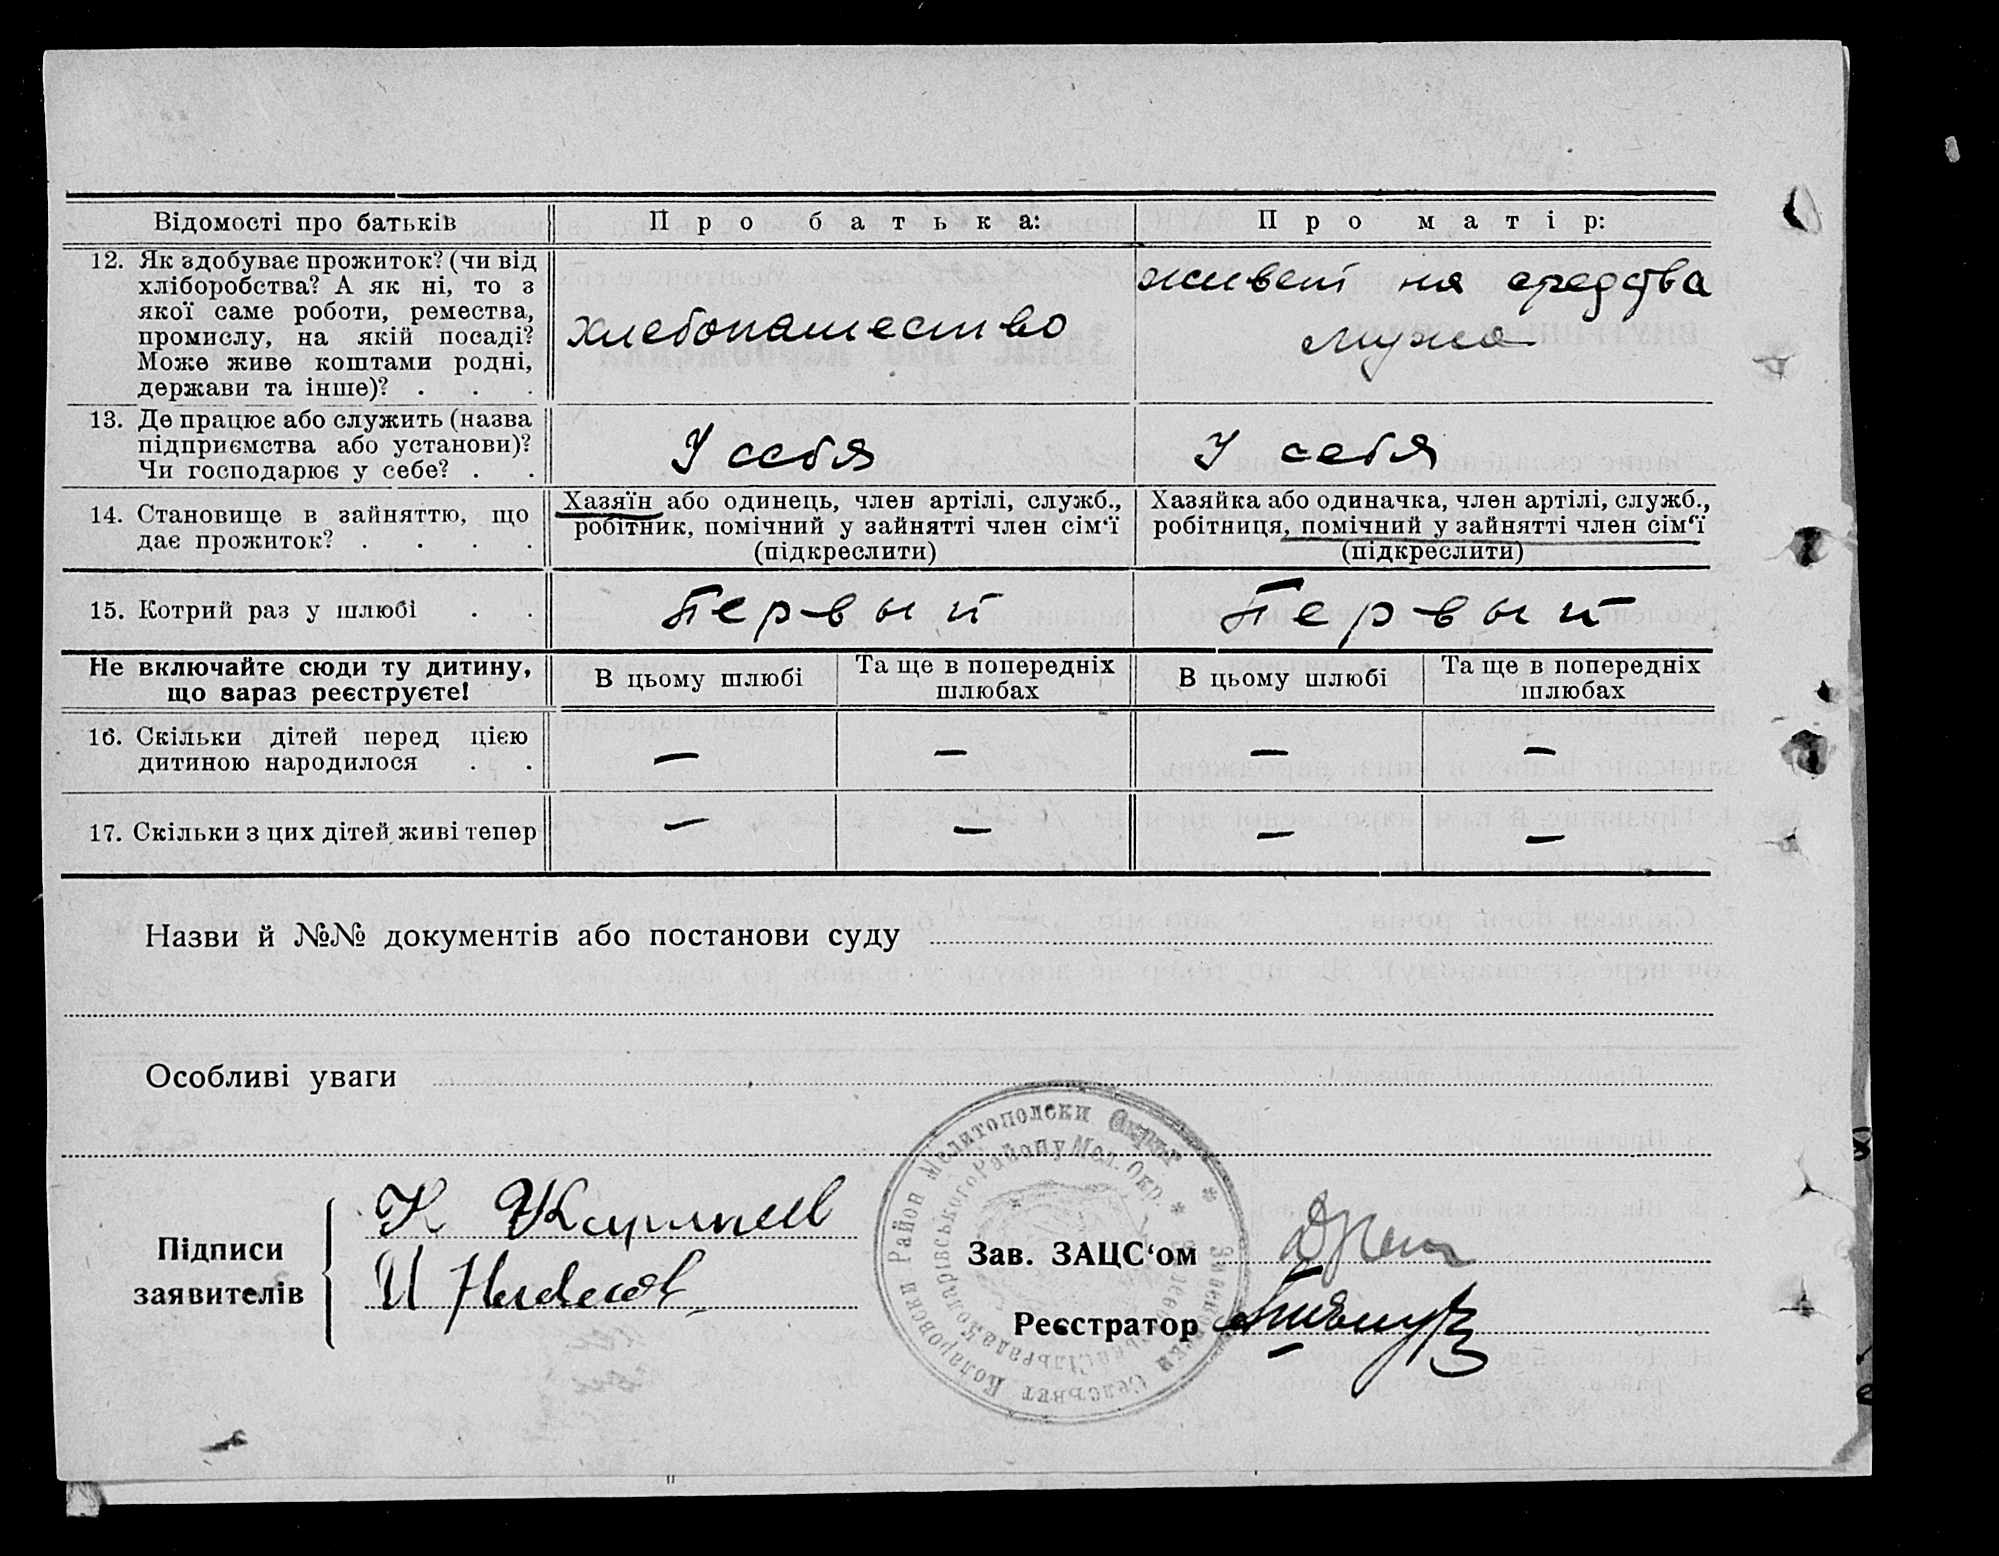 Відомості про батьків
Про батька:
Про матір:
12. Як здобуває прожиток? (чи від
хліборобства? А як ні, то з
якої саме роботи, ремества,
промислу, на якій посаді?
Може живе коштами родні,
держави та інше)? . . .
хлебопашество
живет на средства
мужа
13. Де працює або служить (назва
підприємства або установи)?
Чи господарює у себе? . .
У себя
У себя
14. Становище в зайняттю, що
дає прожиток? . . . .
Хазяїн або одинець, член артілі, служб.,
робітник, помічний у зайнятті член сім‘ї
(підкреслити)
Хазяйка або одиначка, член артілі, служб.,
робітниця, помічний у зайнятті член сім‘ї
(підкреслити)
15. Котрий раз у шлюбі . .
Первый
Первый
Не включайте сюди ту дитину,
що зараз реєструєте!
В цьому шлюбі
Та ще в попередніх
шлюбах
В цьому шлюбі
Та ще в попередніх
шлюбах
16. Скільки дітей перед цією
дитиною народилося . .
— — — —
17. Скільки з цих дітей живі тепер
— — — —
Назви й №№ документів або постанови суду
Особливі уваги
Коларовски Район Мелитополски Окръг *
Селсъвет
Коларівського Району Мел. Окр. *
Сільрада
Підписи
заявителів
К
И
Зав. ЗАЦС‘ом
Реєстратор